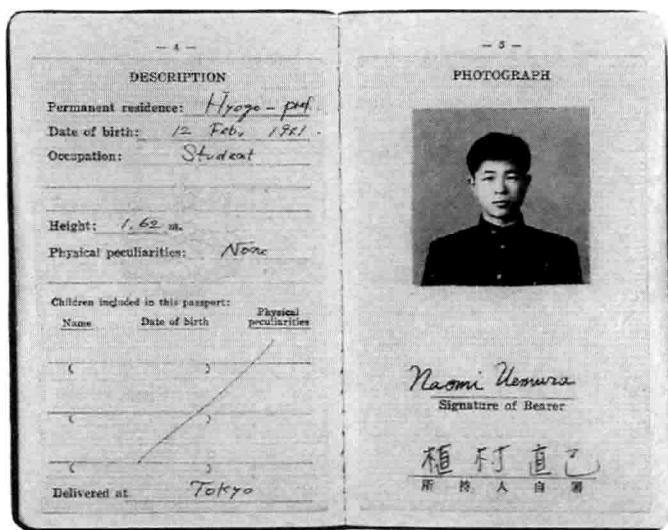 — 4 —
DESCRIPTION
Permanent residence: Hyogo-pref.
Date of birth: 12 Feb, 1941.
Occupation: Student
Height: 1.62 m.
Physical peculiarities: None
Children included in this passport:
Name Date of birth Physical peculiarities
( )
( )
( )
Delivered at Tokyo
— 5 —
PHOTOGRAPH
Naomi Uemura
Signature of Bearer
植村直己
所持人自署